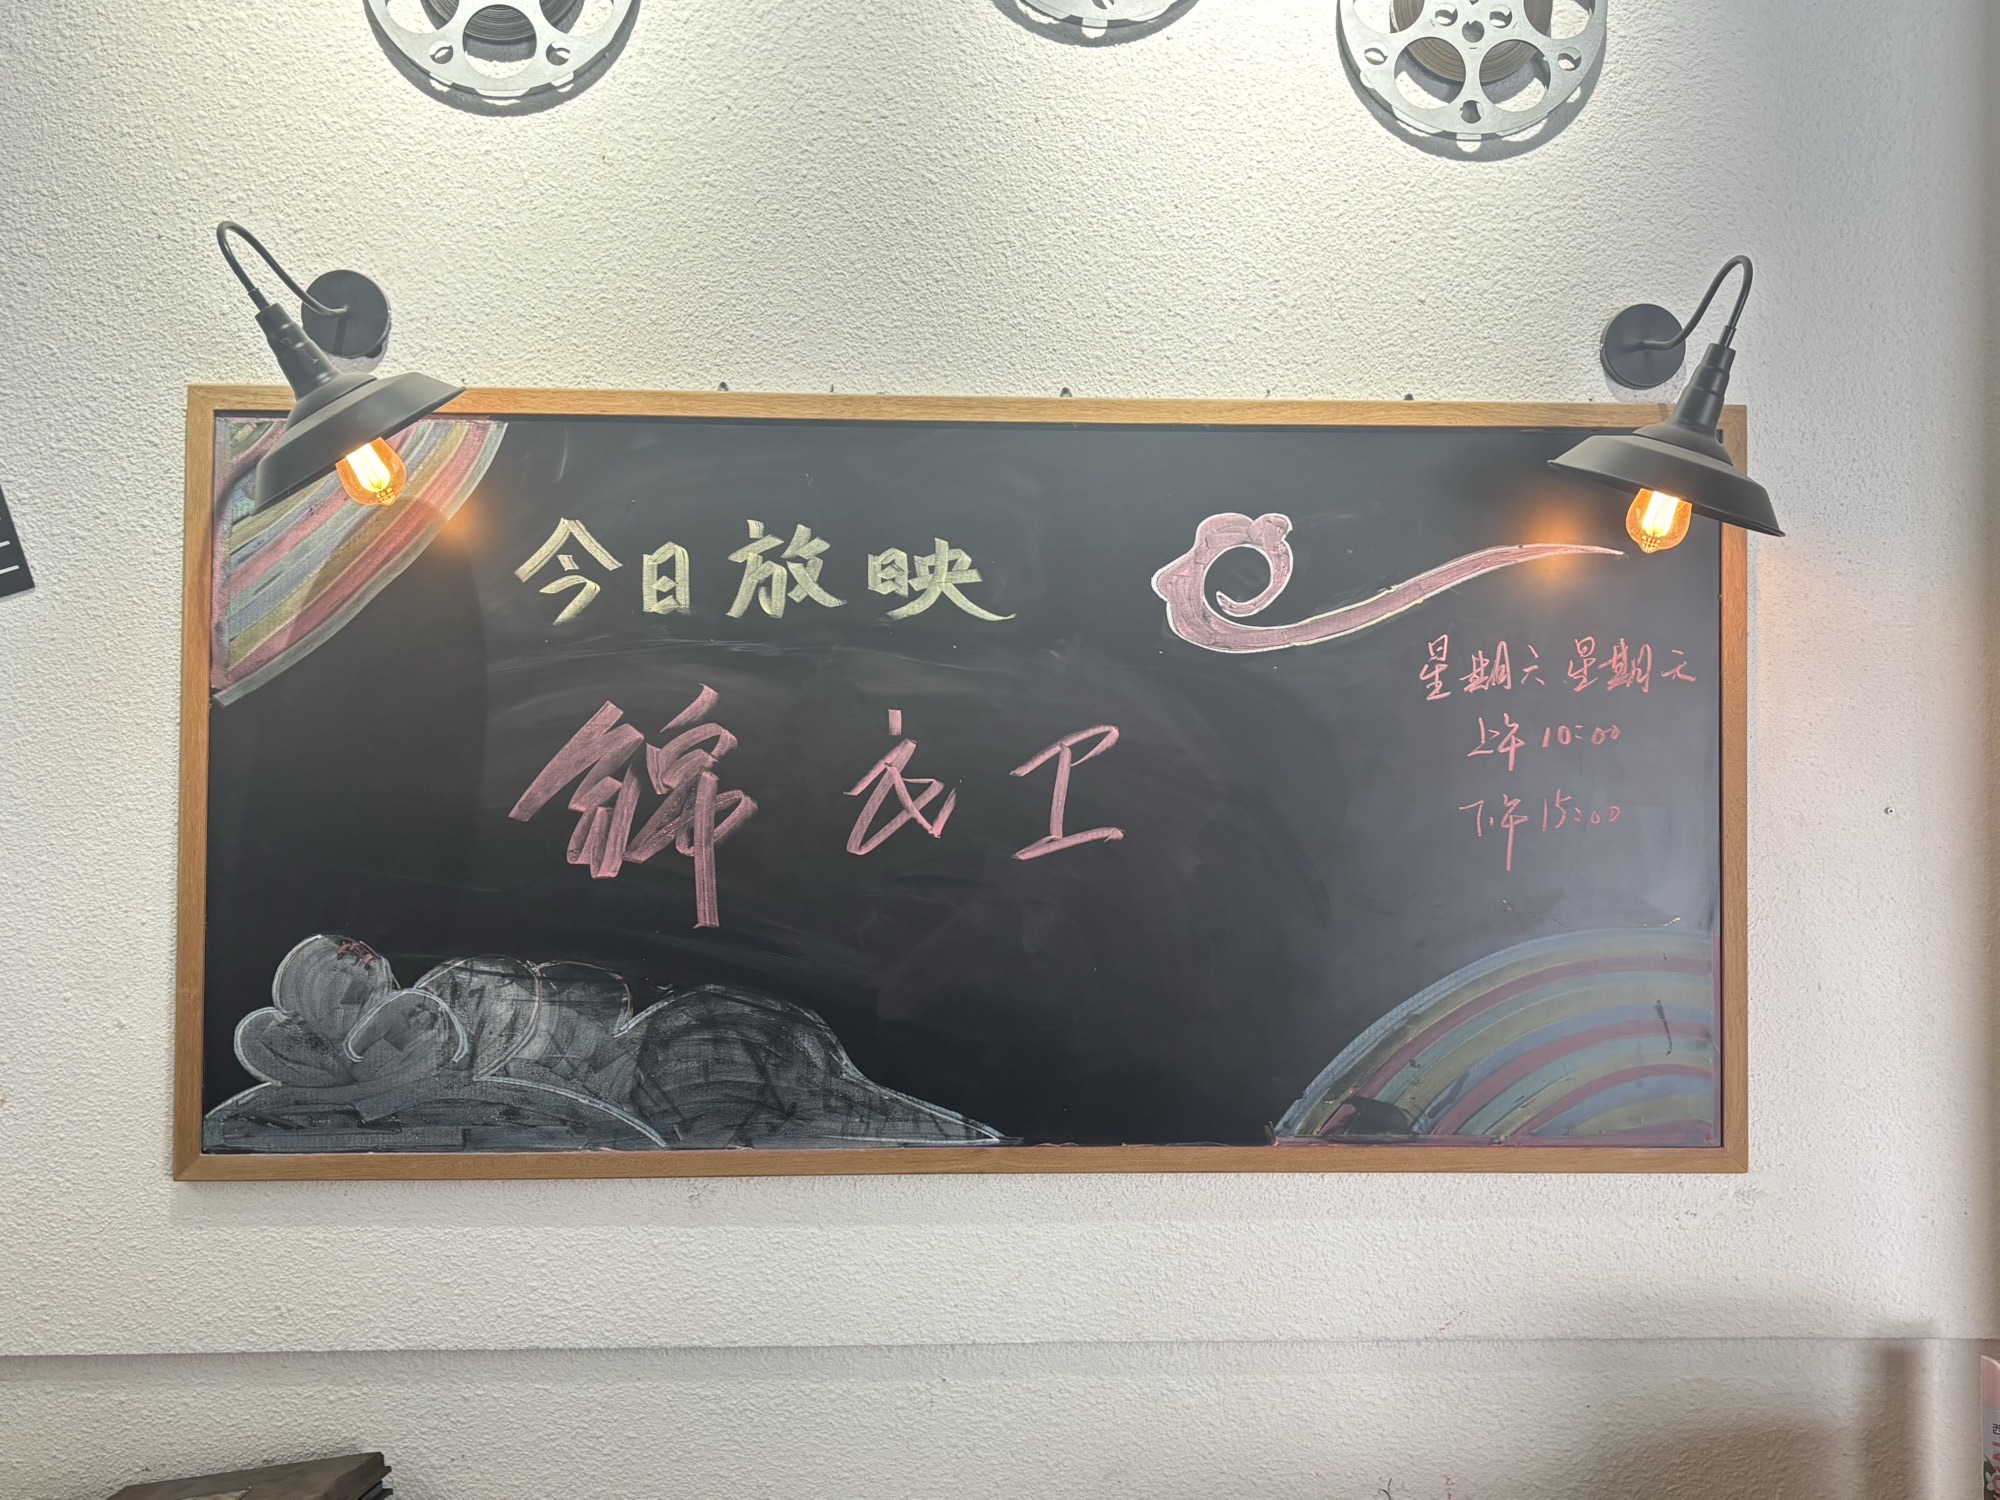 今日放映
錦衣卫
星期六 星期天
上午 10:00
下午 15:00